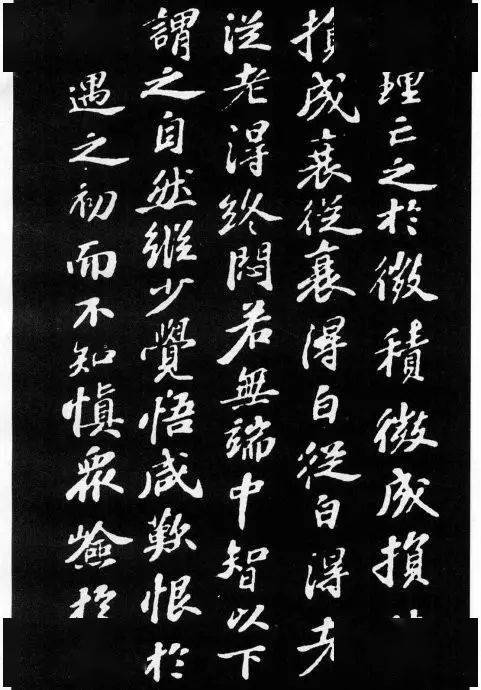 理亡之於微積微成損
損成衰從衰得白從白得老
從老得終悶若無端中智以下
謂之自然縱少覺悟咸歎恨於
遇之初而不知慎衆險於